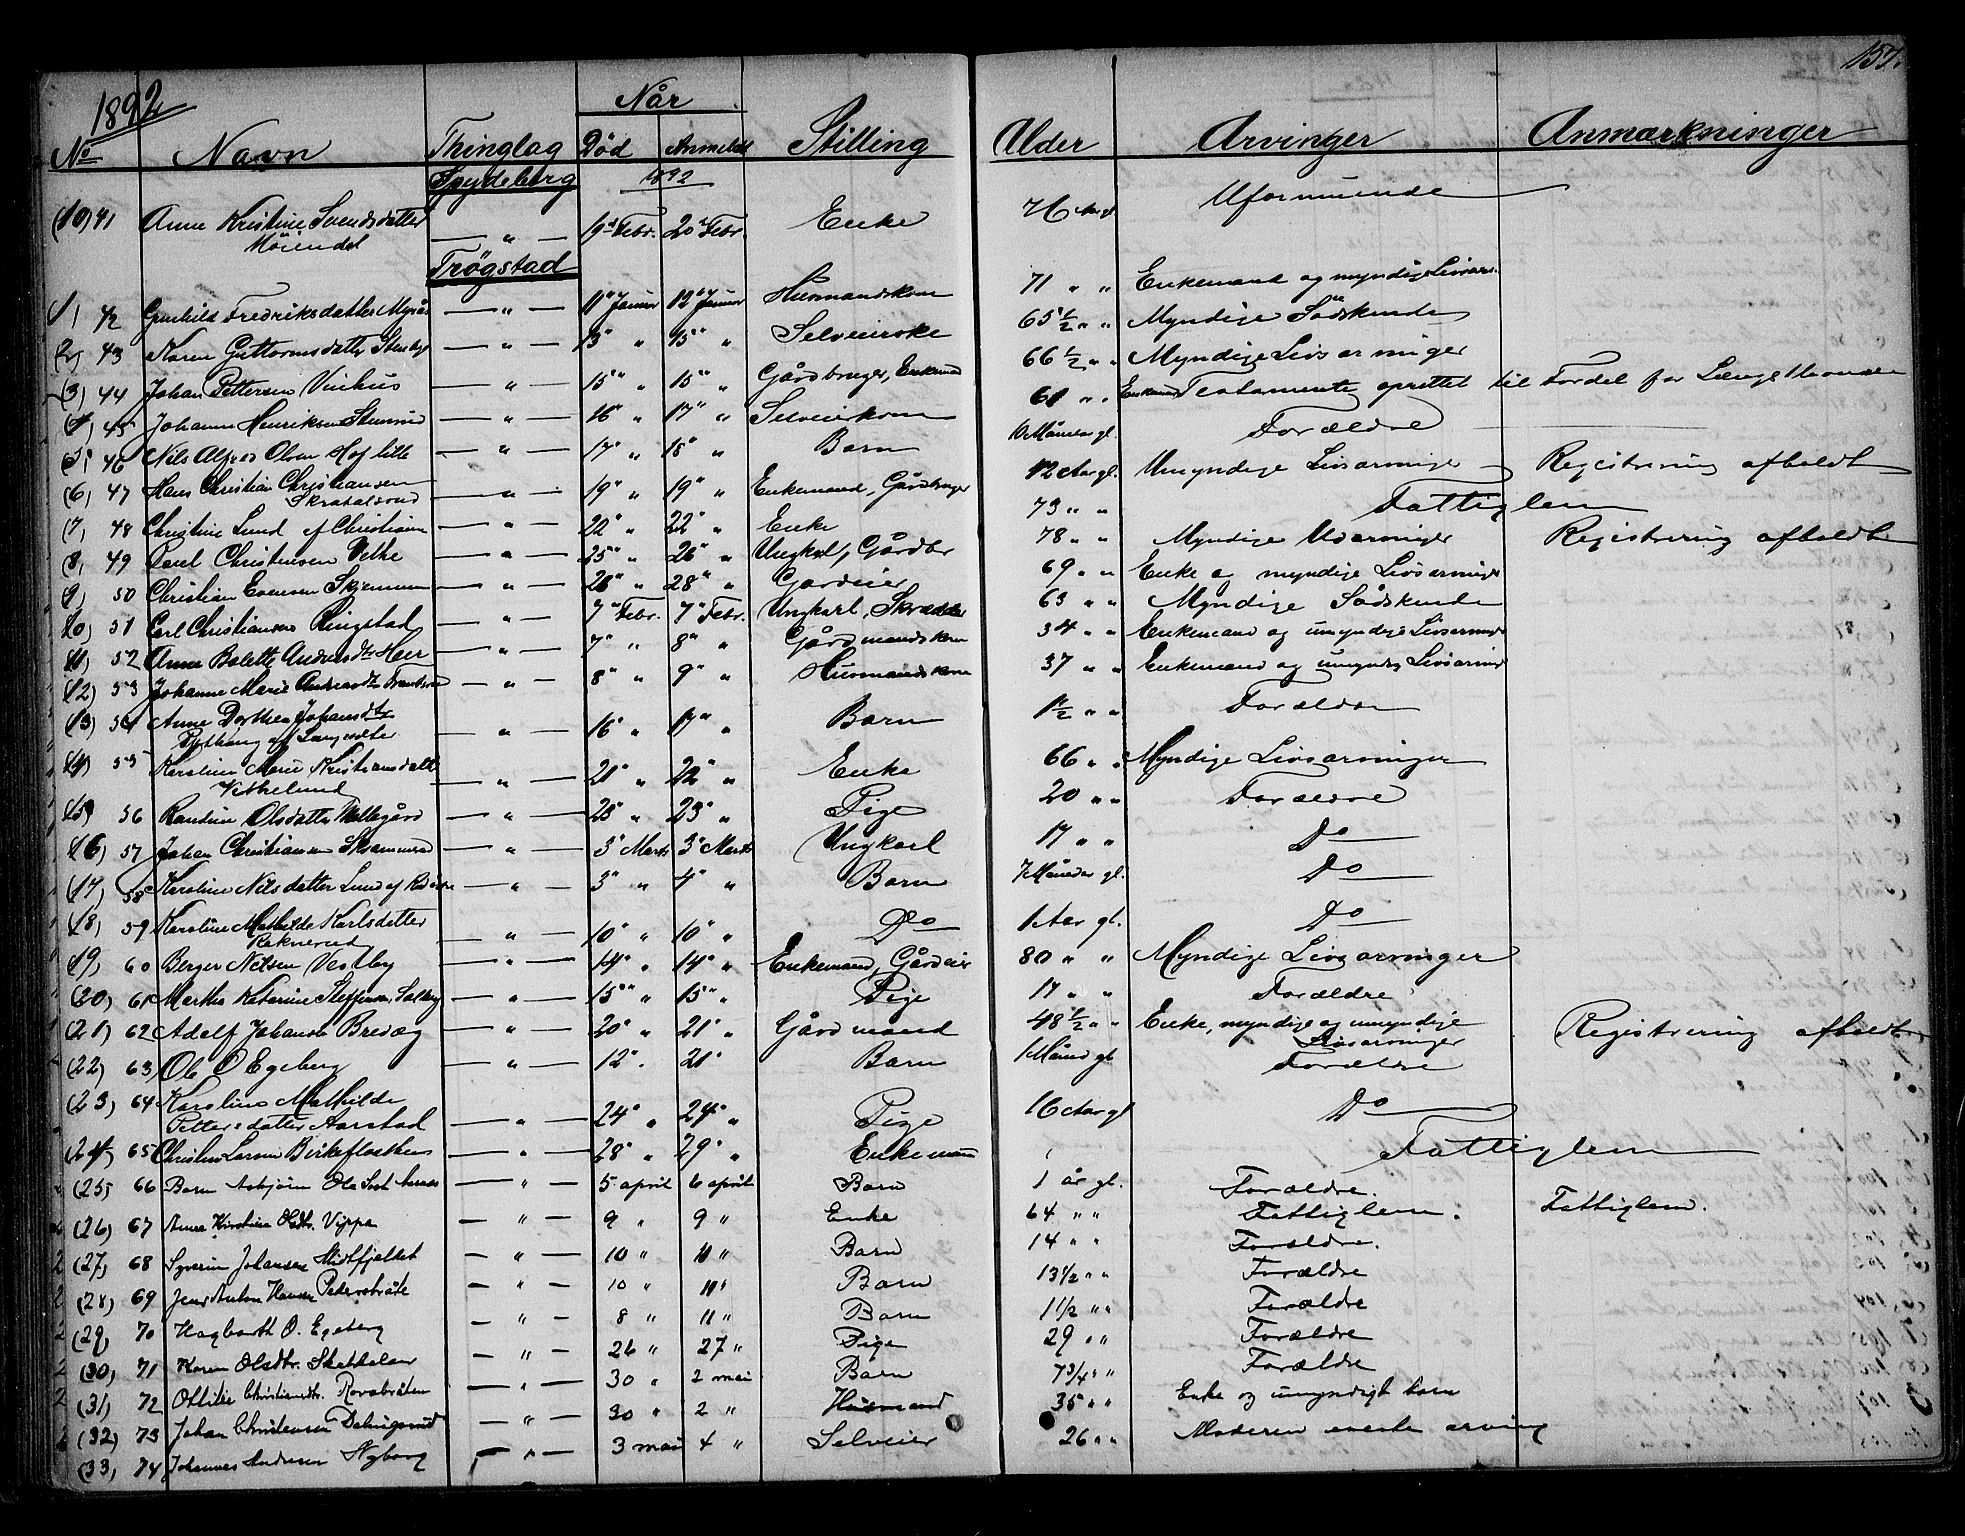 1892
157.
Når
No Navn Thinglag Død Anmeldt Stilling Alder Arvinger Anmærkninger
Spydeberg 1892
(10) 41 Anne Kristine Svendsdatter — " — 19" Febr. 20" Febr. Enke 76 Aar gl. Uformuende
Møiendal
Trøgstad
1) 42 Gunhild Fredriksdatter — " — 11" Januar 12" Januar Husmandskone 71 " " Enkemand og myndige Livsarv.
(2) 43 Karen Guttormsdatter — " — 13" " 15" " 65 1/2 " " Myndige Sødskende
(3) 44 Johan Pettersen — " — 15" " 15" " Gårdbruger, Enkemand 66 1/2 " " Myndige Livsarvinger
(4) 45 Johanne Henriksen — " — 16" " 17" " Selveierkone 61 " " Enkemand Testamente oprettet til Fordel for Længstlevende
(5) 46 Nils Alfred Olsen Hof lille — " — 17" " 18" " Barn 10 Måneder gl. Forældre
(6) 47 Hans Christian Christiansen — " — 19" " 19" " Enkemand, Gårdbruger 42 Aar gl. Umyndige Livsarvinger Registrering afholdt
(7) 48 Christine Lund af — " — 22" " 22" " Enke 73 " " Fattiglem
(8) 49 Christensen — " — 25" " 26" " Ungkarl, Gårdbr 78 " " Myndige Udarvinger Registrering afholdt
(9) 50 Christian Evensen — " — 26" " 28" " Gårdeier 69 " " Enke og myndige Livsarvinger
10) 51 Carl Christiansen Ringstad — " — 7" Febr. 7" Febr. Ungkarl, Skrædder 63 " " Myndige Sødskende
11) 52 Anne Bolette Andreasdtr — " — 7" " 8" " Gårdmandskone 34 " " Enkemand og umyndige Livsarvinger
(12) 53 Johanne Marie Andreasdtr — " — 8" " 9" " Husmandskone 37 " " Enkemand og umyndig Livsarving
(13) 54 Anne Dorthea Johansdtr — " — 16" " 17" " Barn 1 1/2 " " Forældre
(14) 55 Karoline Marie Kristiansdatter — " — 21" " 22" " Enke 66 " " Myndige Livsarvinger
15) 56 Randine Olsdatter — " — 23" " 23" " Pige 20 " " Forældre
16) 57 Johan Christiansen — " — 3" Marts 3" Marts Ungkarl 17 " " Do
(17) 58 Karoline Nilsdatter Lund af — " — 3" " 4" " Barn 7 Måneder gl. Do
(18) 59 Karoline Mathilde Karlsdatter — " — 10" " 10" " Do 1 Aar gl. Do
Raknerud
19) 60 Berger Nilsen Vestby — " — 14" " 14" " Enkemand, Gårdeier 80 " " Myndige Livsarvinger
(20) 61 Martha Katarine — " — 15" " 15" " Pige 17 " " Forældre
(21) 62 Adolf Johansen — " — 20" " 21" " Gårdmand 48 1/2 " " Enke, myndige og umyndige Registrering afholdt
Livsarvinger
(22) 63 Ole O Egeberg — " — 12" " 21" Barn 1 Måned gl Forældre
(23) 64 Karoline Mathilde
Pettersdatter Aarstad — " — 24" " 24" " Pige 16 Aar gl Do
(24) 65 Christen Larsen — " — 28" " 29" " Enkemand Fattiglem
(25) 66 Barn Asbjørn Ole — " — 5 april 6 april Barn 1 år gl. Forældre.
(26) 67 Anne Kirstine Olsdtr. Vippa — " — 9 " 9 " Enke 64 " " Fattiglem. Fattiglem.
(27) 68 Syverin Johansen Midtfjeldet — " — 10 " 11 " Barn 14 " " Forældre.
(28) 69 Jens Anton Hansen Pedersbråte — " — 10 " 11 " Barn 13 1/2 " " Forældre
(29) 70 Hagbarth O. Egeberg — " — 8 " 11 " Barn 1 1/2 " " Forældre
(30) 71 Karen Olsdtr. — " — 26 " 27 " Pige 29 " " Forældre
(31) 72 Ottilie Christiansdtr. — " — 30 " 2 mai Barn 7 3/4 " " Forældre
(32) 73 Johan Christensen — " — 30 " 2 " Husmand 35 " " Enke og umyndigt barn
(33) 74 Johannes Andersen Nyborg — " — 3 mai 4 " Selveier 26 " " Moderen eneste arving